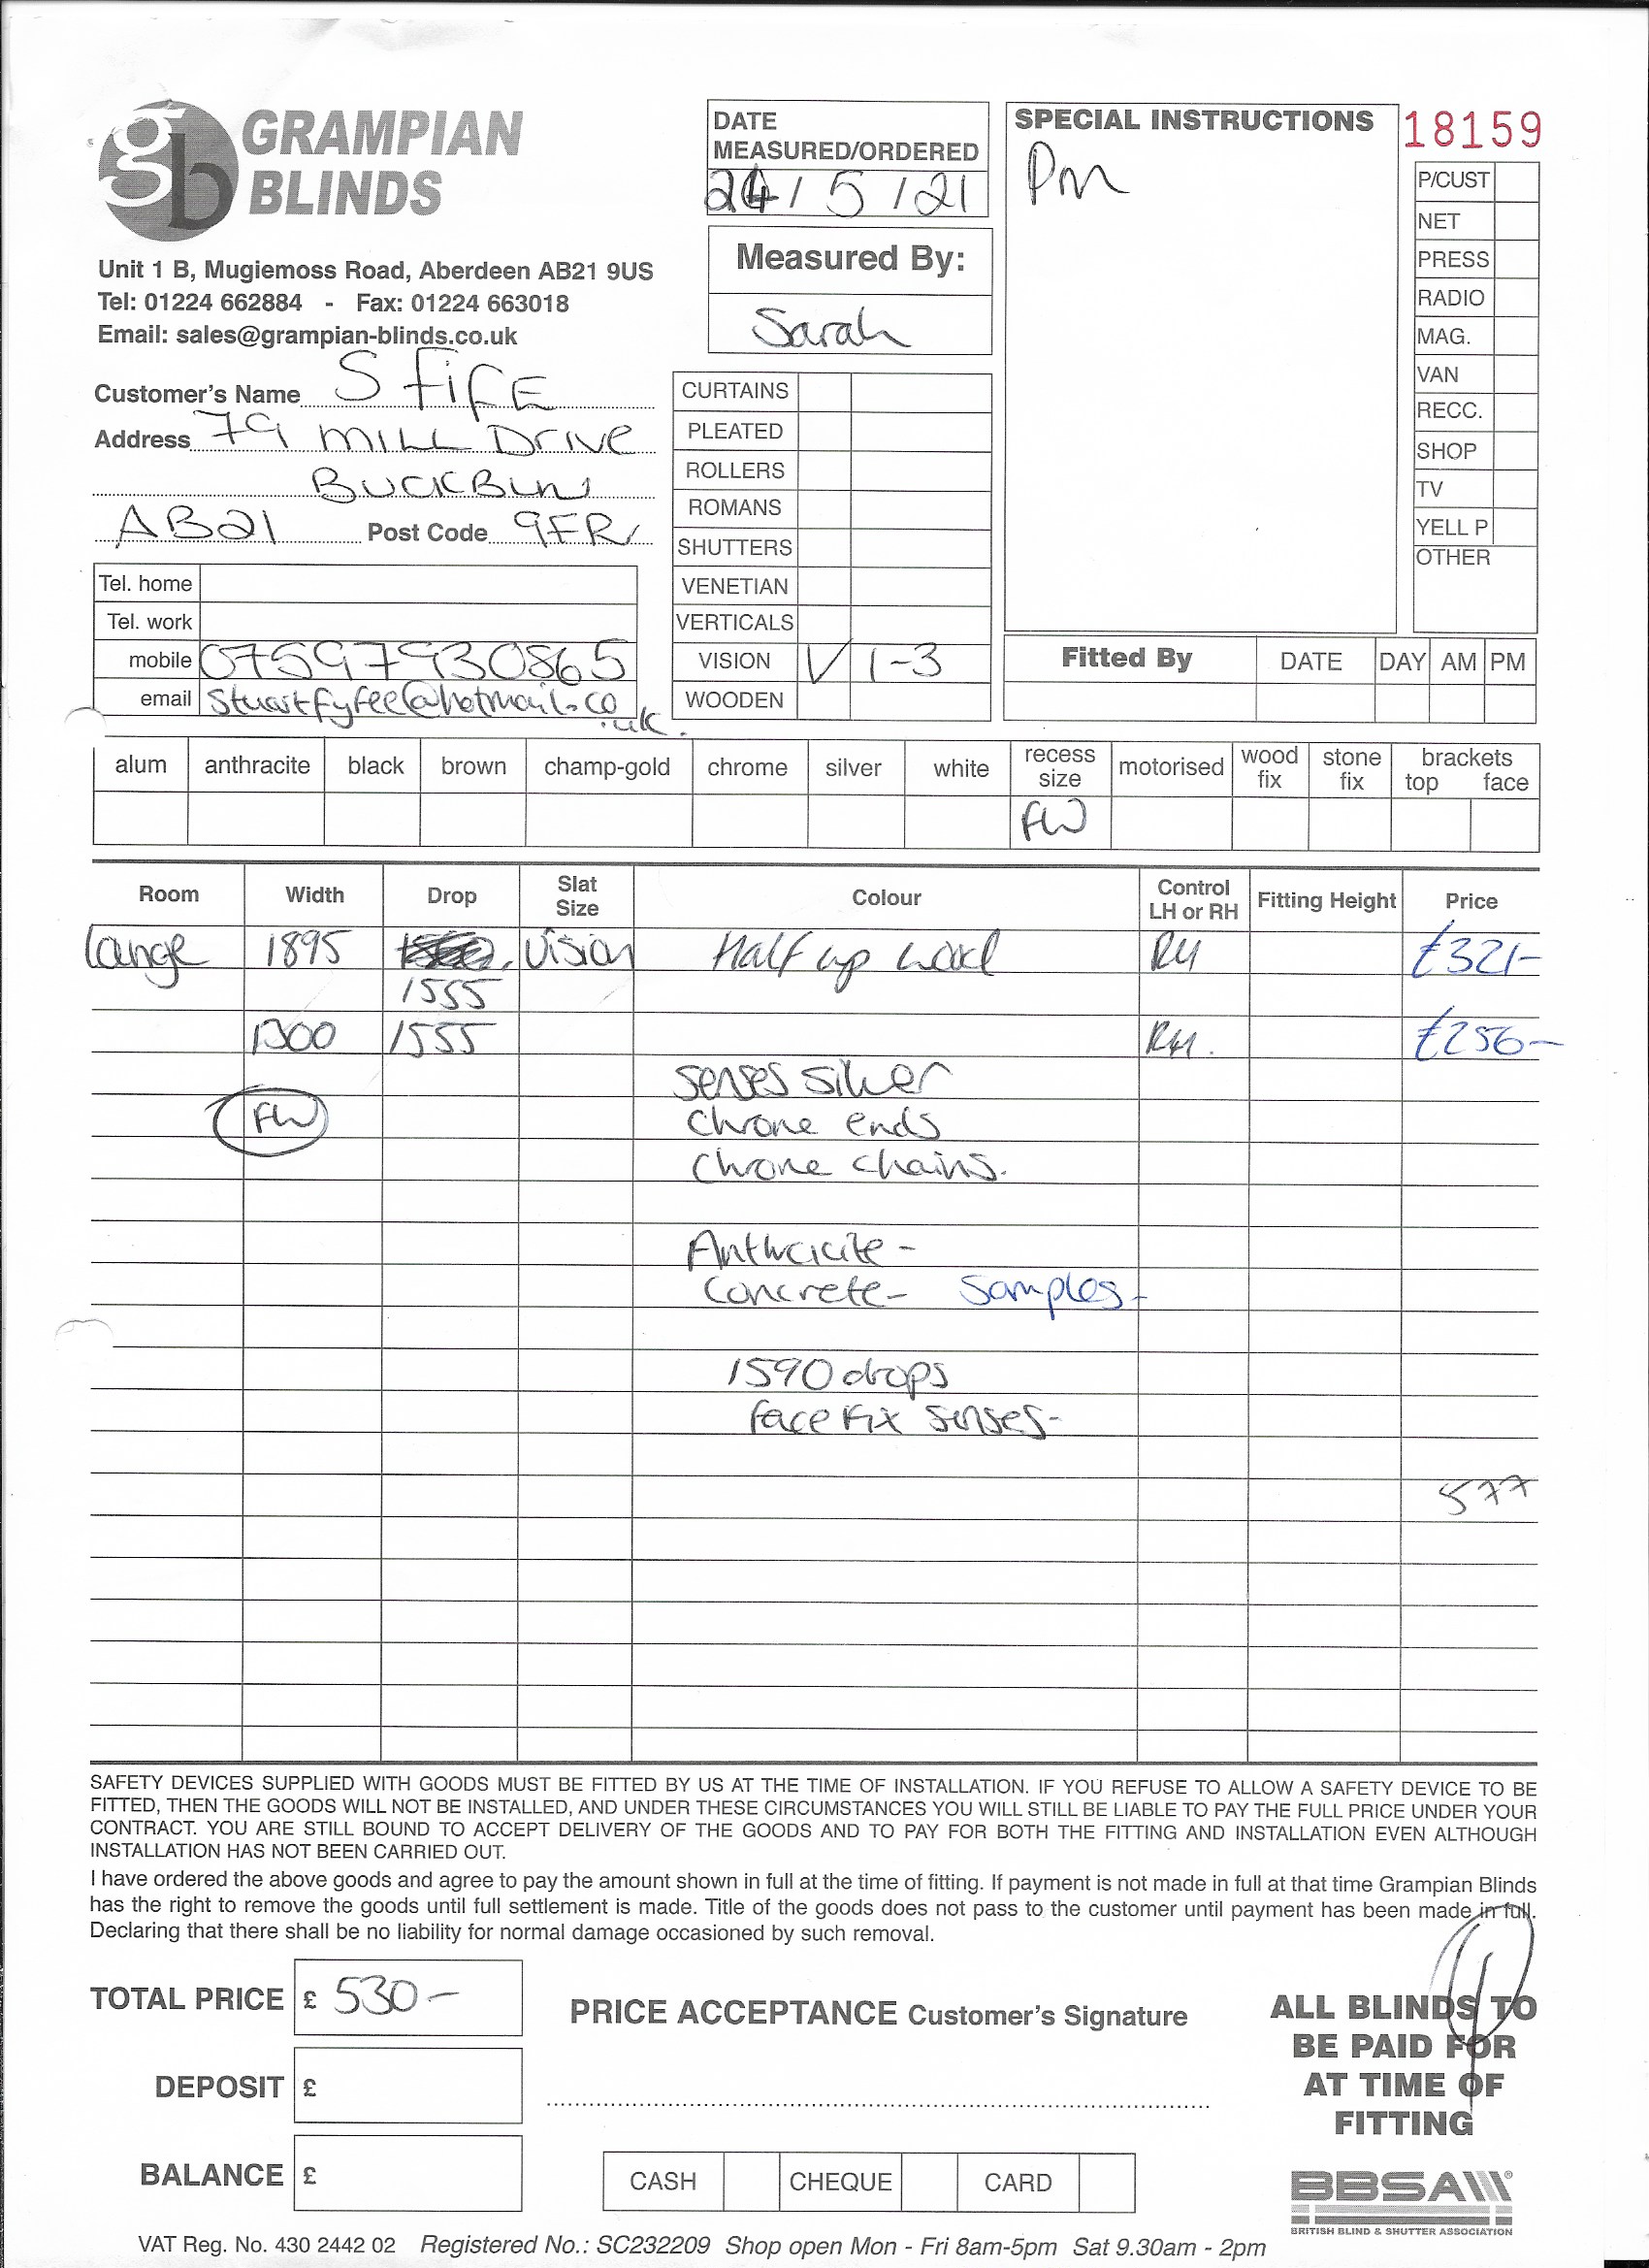 gb GRAMPIAN
BLINDS
Unit 1 B, Mugiemoss Road, Aberdeen AB21 9US
Tel: 01224 662884 - Fax: 01224 663018
Email: sales@grampian-blinds.co.uk
DATE
MEASURED/ORDERED
24/5/21
Measured By:
Sarah
SPECIAL INSTRUCTIONS
Pm
18159
P/CUST
NET
PRESS
RADIO
MAG.
VAN
RECC.
SHOP
TV
YELL P
OTHER
Customer's Name S FIFE
Address 79 MILL Drive
BUCKBUN
AB21 Post Code 9FR
Tel. home
Tel. work
mobile 07597930865
email Stuartfyfee@hotmail.co
.uk.
CURTAINS
PLEATED
ROLLERS
ROMANS
SHUTTERS
VENETIAN
VERTICALS
VISION ✓ 1-3
WOODEN
Fitted By DATE DAY AM PM
alum anthracite black brown champ-gold chrome silver white recess size motorised wood fix stone fix brackets top face
FW
Room Width Drop Slat Size Colour Control LH or RH Fitting Height Price
Lounge 1895 Vision Half up wood RH £321-
1555
1300 1555 RH. £256-
senses silver
FW Chrome ends
Chrome chains.
Anthricite -
Concrete - Samples-
1590 drops
face fix senses-
577
SAFETY DEVICES SUPPLIED WITH GOODS MUST BE FITTED BY US AT THE TIME OF INSTALLATION. IF YOU REFUSE TO ALLOW A SAFETY DEVICE TO BE
FITTED, THEN THE GOODS WILL NOT BE INSTALLED, AND UNDER THESE CIRCUMSTANCES YOU WILL STILL BE LIABLE TO PAY THE FULL PRICE UNDER YOUR
CONTRACT. YOU ARE STILL BOUND TO ACCEPT DELIVERY OF THE GOODS AND TO PAY FOR BOTH THE FITTING AND INSTALLATION EVEN ALTHOUGH
INSTALLATION HAS NOT BEEN CARRIED OUT.
I have ordered the above goods and agree to pay the amount shown in full at the time of fitting. If payment is not made in full at that time Grampian Blinds
has the right to remove the goods until full settlement is made. Title of the goods does not pass to the customer until payment has been made in full.
Declaring that there shall be no liability for normal damage occasioned by such removal.
TOTAL PRICE £ 530-
DEPOSIT £
BALANCE £
PRICE ACCEPTANCE Customer's Signature
CASH CHEQUE CARD
ALL BLINDS TO
BE PAID FOR
AT TIME OF
FITTING
BBSA
BRITISH BLIND & SHUTTER ASSOCIATION
VAT Reg. No. 430 2442 02 Registered No.: SC232209 Shop open Mon - Fri 8am-5pm Sat 9.30am - 2pm